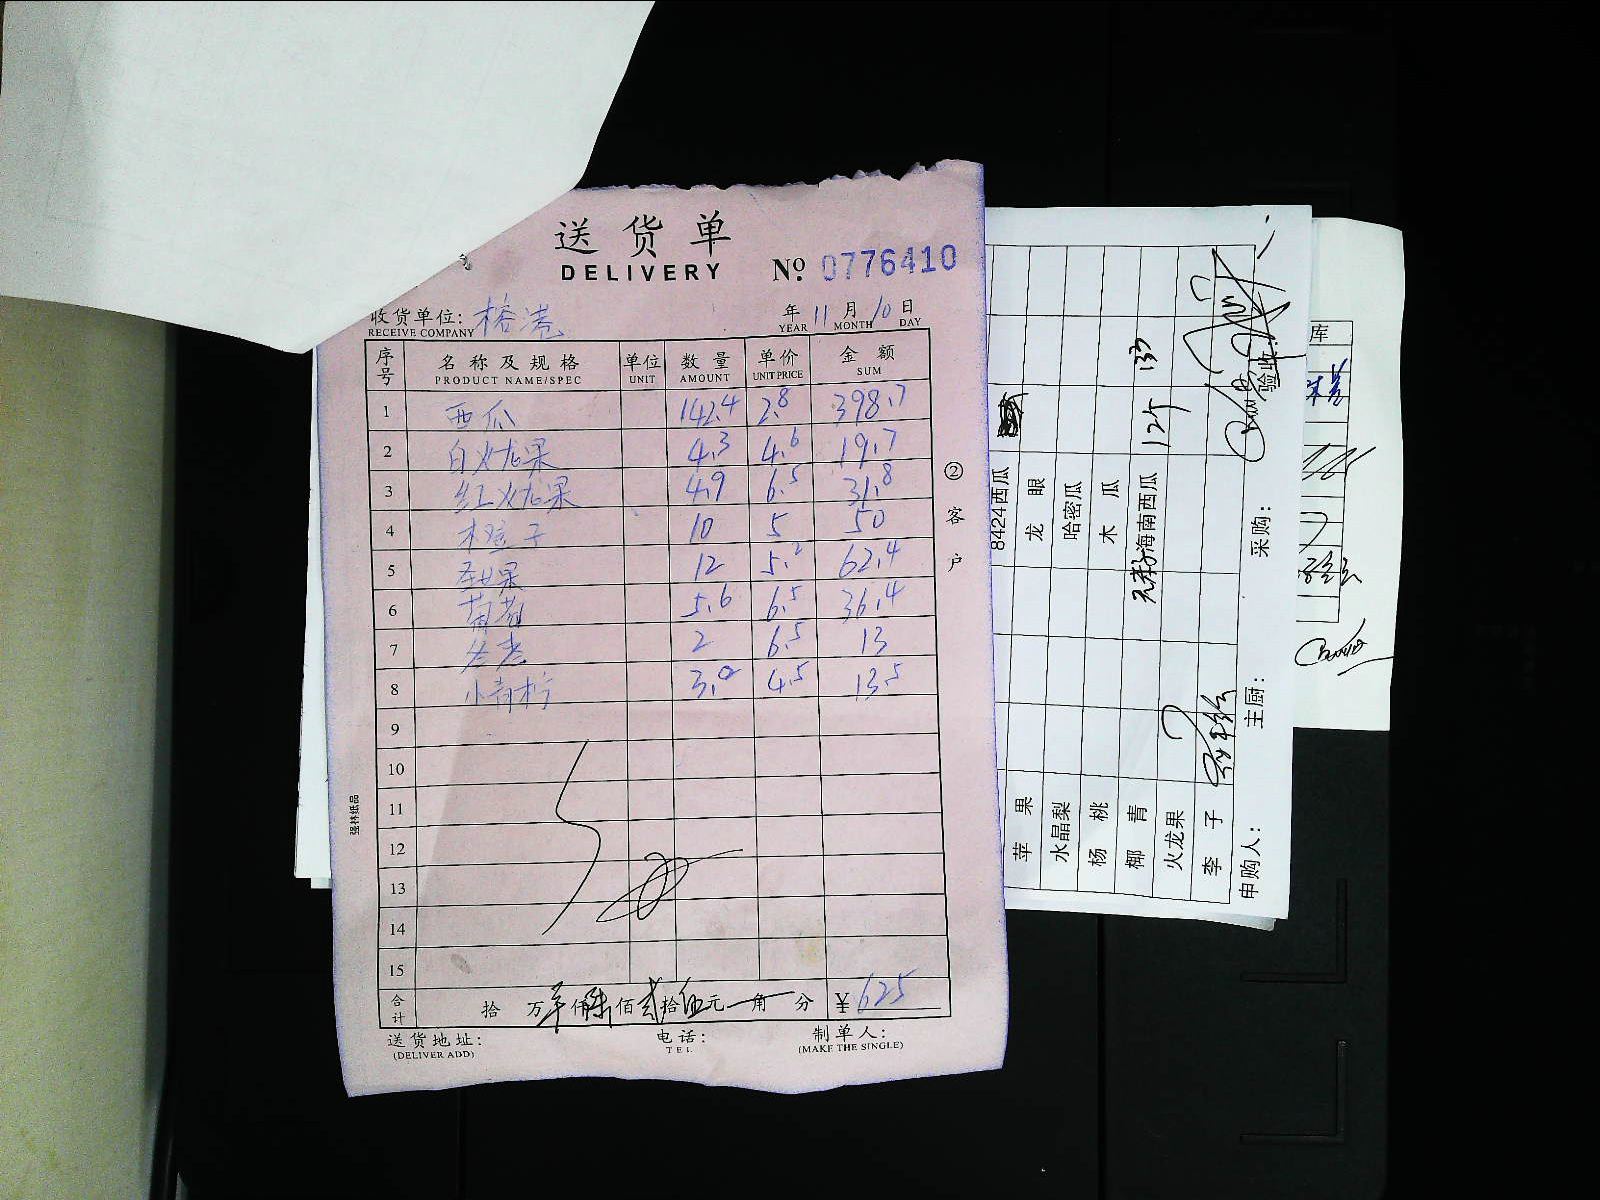 送货单
DELIVERY
№ 0776410
收货单位: 榕港
RECEIVE COMPANY
年 11 月 10 日
YEAR MONTH DAY
序号 名称及规格 单位 数量 单价 金额
PRODUCT NAME/SPEC UNIT AMOUNT UNIT PRICE SUM
1 西瓜 142.4 2.8 398.7
2 白火龙果 4.3 4.6 19.7
3 红火龙果 4.9 6.5 31.8
4 橙子 10 5 50
5 苹果 12 5.2 62.4
6 葡萄 5.6 6.5 36.4
7 冬枣 2 6.5 13
8 小青柠 3.0 4.5 13.5
9
10
11
12
13
14
15
合计 拾 万 仟 陆 佰 贰 拾 伍 元 角 分 ¥ 625
送货地址: 电话: 制单人:
(DELIVER ADD) TEL (MAKE THE SINGLE)
② 客户
强林纸品
8424西瓜
龙眼
哈密瓜
木瓜
海南西瓜 125 133
苹果
水晶梨
杨桃
椰青
火龙果
李子
申购人: 主厨: 采购: 验收:
库